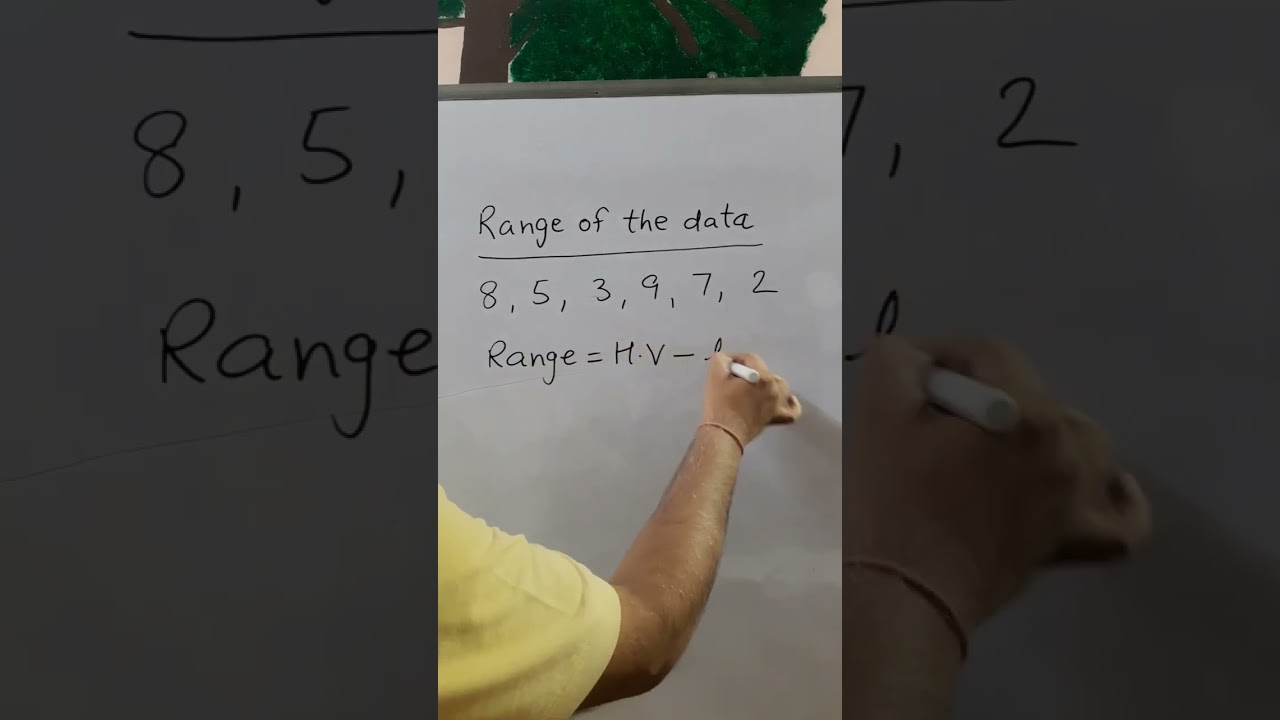 Range of the data
8, 5, 3, 9, 7, 2
Range = H.V –